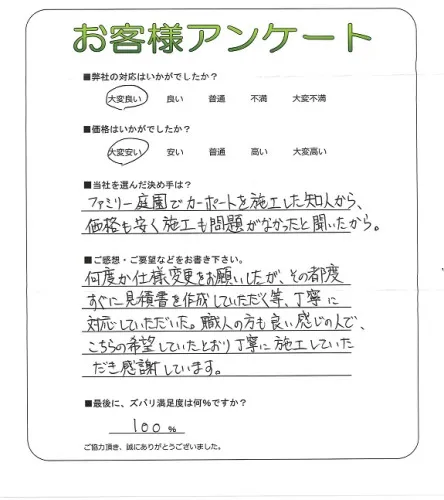 お客様アンケート
■弊社の対応はいかがでしたか?
大変良い 良い 普通 不満 大変不満
■価格はいかがでしたか?
大変安い 安い 普通 高い 大変高い
■当社を選んだ決め手は?
ファミリー庭園でカーポートを施工した知人から、
価格も安く施工も問題がなかったと聞いたから。
■ご感想・ご要望などをお書き下さい。
何度か仕様変更をお願いしたが、その都度
すぐに見積書を作成していただく等、丁寧に
対応していただいた。職人の方も良い感じの人で、
こちらの希望していたとおり丁寧に施工していた
だき感謝しています。
■最後に、ズバリ満足度は何%ですか?
100 %
ご協力頂き、誠にありがとうございました。